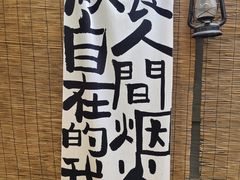 人間烟火
自在的我